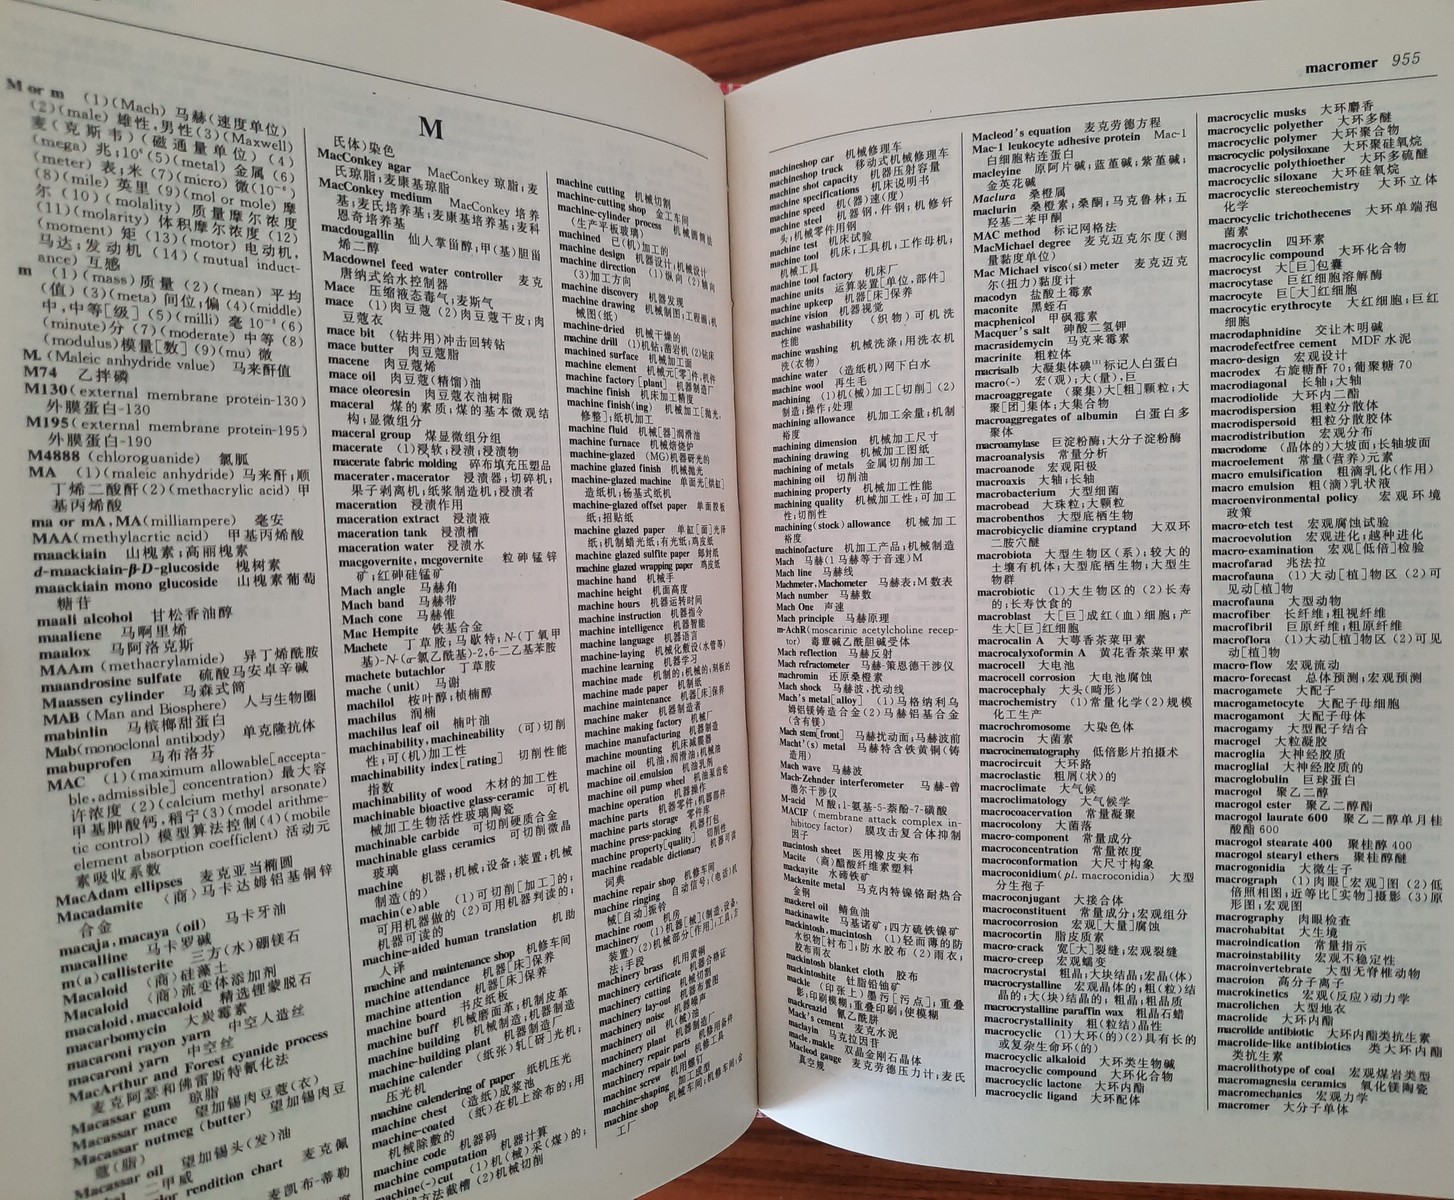 M
M or m (1)(Mach)马赫(速度单位)
(2)(male)雄性,男性(3)(Maxwell)
麦(克斯韦)(磁通量单位)(4)
(mega)兆;10⁶(5)(metal)金属(6)
(meter)表;米(7)(micro)微(10⁻⁶)
(8)(mile)英里(9)(mol or mole)摩
尔(10)(molality)质量摩尔浓度
(11)(molarity)体积摩尔浓度(12)
(moment)矩(13)(motor)电动机,
马达;发动机(14)(mutual induct-
ance)互感
m (1)(mass)质量(2)(mean)平均
(值)(3)(meta)间位;偏(4)(middle)
中,中等[级](5)(milli)毫10⁻³(6)
(minute)分(7)(moderate)中等(8)
(modulus)模量[数](9)(mu)微
M.(Maleic anhydride value) 马来酐值
M74 乙拌磷
M130(external membrane protein-130)
外膜蛋白-130
M195(external membrane protein-195)
外膜蛋白-190
M4888(chloroguanide) 氯胍
MA (1)(maleic anhydride)马来酐;顺
丁烯二酸酐(2)(methacrylic acid)甲
基丙烯酸
ma or mA,MA(milliampere) 毫安
MAA(methylacrtic acid) 甲基丙烯酸
maackiain 山槐素;高丽槐素
d-maackiain-β-D-glucoside 槐树素
maackiain mono glucoside 山槐素葡萄
糖苷
maali alcohol 甘松香油醇
maaliene 马啊里烯
maalox 马阿洛克斯
MAAm(methacrylamide) 异丁烯酰胺
maandrosine sulfate 硫酸马安卓辛碱
Maassen cylinder 马森式筒
MAB(Man and Biosphere) 人与生物圈
mabinlin 马槟榔甜蛋白
Mab(monoclonal antibody) 单克隆抗体
mabuprofen 马布洛芬
MAC (1)(maximum allowable[accepta-
ble,admissible] concentration)最大容
许浓度(2)(calcium methyl arsonate)
甲基胂酸钙,稻宁(3)(model arithme-
tic control)模型算法控制(4)(mobile
element absorption coefficient)活动元
素吸收系数
MacAdam ellipses 麦克亚当椭圆
Macadamite (商)马卡达姆铝基铜锌
合金
macaja,macaya(oil) 马卡牙油
macalline 马卡罗碱
m(a)callisterite 三方(水)硼镁石
Macaloid (商)硅藻土
Macaloid (商)流变体添加剂
macaloid,maccaloid 精选锂蒙脱石
macarbomycin 大炭霉素
macaroni rayon yarn 中空人造丝
macaroni yarn 中空丝
MacArthur and Forest cyanide process
麦克阿瑟和佛雷斯特氰化法
Macassar gum 琼脂
Macassar mace 望加锡肉豆蔻(衣)
Macassar nutmeg(butter) 望加锡肉豆
蔻(脂)
Macassar oil 望加锡头(发)油
二甲威
color rendition chart 麦克佩
麦凯布-蒂勒
氏体)染色
MacConkey agar MacConkey琼脂;麦
氏琼脂;麦康基琼脂
MacConkey medium MacConkey培养
基;麦氏培养基;麦康基培养基;麦科
恩奇培养基
macdougallin 仙人掌甾醇;甲(基)胆甾
烯二醇
Macdownel feed water controller 麦克
唐纳式给水控制器
Mace 压缩液态毒气;麦斯气
mace (1)肉豆蔻(2)肉豆蔻干皮;肉
豆蔻衣
mace bit (钻井用)冲击回转钻
mace butter 肉豆蔻脂
macene 肉豆蔻烯
mace oil 肉豆蔻(精馏)油
mace oleoresin 肉豆蔻衣油树脂
maceral 煤的素质;煤的基本微观结
构;显微组分
maceral group 煤显微组分组
macerate (1)浸软;浸渍;浸渍物
macerate fabric molding 碎布填充压塑品
macerater,macerator 浸渍器;切碎机;
果子剥离机;纸浆制造机;浸渍者
maceration 浸渍作用
maceration extract 浸渍液
maceration tank 浸渍槽
maceration water 浸渍水
macgovernite,mcgovernite 粒砷锰锌
矿;红砷硅锰矿
Mach angle 马赫角
Mach band 马赫带
Mach cone 马赫锥
Mac Hempite 铁基合金
Machete 丁草胺;马歇特;N-(丁氧甲
基)-N-(α-氯乙酰基)-2,6-二乙基苯胺
machete butachlor 丁草胺
mache(unit) 马谢
machilol 桉叶醇;桢楠醇
machilus 润楠
machilus leaf oil 楠叶油
machinability,machineability (可)切削
性;可(机)加工性
machinability index[rating] 切削性能
指数
machinability of wood 木材的加工性
machinable bioactive glass-ceramic 可机
械加工生物活性玻璃陶瓷
machinable carbide 可切削硬质合金
machinable glass ceramics 可切削微晶
玻璃
machine 机器;机械;设备;装置;机械
制造(的)
machin(e)able (1)可切削[加工]的;
可用机器做的(2)可用机器判读的;
机器可读的
machine-aided human translation 机助
人译
machine and maintenance shop 机修车间
machine attendance 机器[床]保养
machine attention 机器[床]保养
machine board 书皮纸板
machine buff 机械磨面革;机制皮革
machine building 机械制造;机器制造
machine-building plant 机器制造厂
machine calender (纸张)轧[砑]光机;
压光机
machine calendering of paper 纸机压光
machine chest (造纸)成浆池
machine-coated (纸)在机上涂布的;用
机械除敷的
machine code 机器码
machine computation 机器计算
machine(-)cut (1)机(械)采(煤)的;
方法截槽(2)机械切削
machine cutting 机械切削
machine-cutting shop 金工车间
machine-cylinder process 机械圆筒法
(生产平板玻璃)
machined 已(机)加工的
machine design 机器设计;机械设计
machine direction (1)纵向(2)轴向
(3)加工方向
machine discovery 机器发现
machine drawing 机械制图;工程画;机
械图(纸)
machine-dried 机械干燥的
machine drill (1)机钻;凿岩机(2)钻床
machined surface 机械加工面
machine element 机械元[零]件;机件
machine factory[plant] 机器制造厂
machine finish 机床加工精度
machine finish(ing) 机械加工[抛光,
修整];纸机加工
machine fluid 机械[器]润滑油
machine furnace 机械焙烧炉
machine-glazed (MG)机器研光的
machine glazed finish 机械抛光
machine-glazed machine 单面光[烘缸]
造纸机;杨基式纸机
machine-glazed offset paper 单面胶板
纸;招贴纸
machine glazed paper 单缸[面]光泽
纸;机制蜡光纸;有光纸;鸡皮纸
machine glazed sulfite paper 邮封纸
machine glazed wrapping paper 鸡皮纸
machine hand 机械手
machine height 机面高度
machine hours 机器运转时间
machine instruction 机器指令
machine intelligence 机器智能
machine language 机器语言
machine-laying 机械化敷设(水管等)
machine learning 机器学习
machine made 机制的;机械的;刻板的
machine made paper 机制纸
machine maintenance 机器[床]保养
machine maker 机器制造者
machine making factory 机械厂
machine manufacturing 机器制造
machine mounting 机床减震器
machine oil 机油,润滑油;机械油
machine oil emulsion 机油乳剂
machine oil pump wheel 机油泵齿轮
machine operation 机器操作
machine parts 机器零件;机器部件
machine parts storage 零件库
machine press-packing 机器打包
machine property[quality] 切削性
machine readable dictionary 机器可读
词典
machine repair shop 机修车间
machine ringing 自动信号;(电话)机
械[自动]振铃
machine room 机房
machinery (1)机器[械](制造,设备,
装置)(2)机械部分[作用];工具,方
法;手段
machinery brass 机用黄铜
machinery certificate 机器合格证
machinery cutting 机械切削
machinery lay-out 机器布置图
machinery noise 机器噪声
machinery oil 机(械)油
machinery plant 机器制造厂
machinery repair parts 机修用备件
machinery repair tool 机修工具
machine screw 机用螺钉
machine-shaping 加工成型
machine shop 机械车间;机修车间;金
工厂
macromer 955
machineshop car 机械修理车
machineshop truck 移动式机械修理车
machine shot capacity 机器压射容量
machine specifications 机床说明书
machine speed 机(器)速(度)
machine steel 机器钢,件钢;机修钎
头;机械零件用钢
machine test 机床试验
machine tool 机床;工具机;工作母机;
机械工具
machine tool factory 机床厂
machine units 运算装置[单位,部件]
machine upkeep 机器[床]保养
machine vision 机器视觉
machine washability (织物)可机洗
性能
machine washing 机械洗涤;用洗衣机
洗(衣物)
machine water (造纸机)网下白水
machine wool 再生毛
machining (1)机(械)加工[切削](2)
制造;操作;处理
machining allowance 机加工余量;机制
裕度
machining dimension 机械加工尺寸
machining drawing 机械加工图纸
machining of metals 金属切削加工
machining oil 切削油
machining property 机械加工性能
machining quality 机械加工性;可加工
性;切削性
machining(stock)allowance 机械加工
裕度
machinofacture 机加工产品;机械制造
Mach 马赫(1马赫等于音速)M
Mach line 马赫线
Machmeter,Machometer 马赫表;M数表
Mach number 马赫数
Mach One 声速
Mach principle 马赫原理
m-AchR(moscarinic acetylcholine recep-
tor) 毒蕈碱乙酰胆碱受体
Mach reflection 马赫反射
Mach refractometer 马赫-策恩德干涉仪
machromin 还原桑橙素
Mach shock 马赫波,扰动线
Mach's metal[alloy] (1)马格纳利乌
姆铝镁铸造合金(2)马赫铝基合金
(含有镁)
Mach stem[front] 马赫扰动面;马赫波前
Macht'(s) metal 马赫特含铁黄铜(铸
造用)
Mach wave 马赫波
Mach-Zehnder interferometer 马赫-曾
德尔干涉仪
M-acid M酸;1-氨基-5-萘酚-7-磺酸
MACIF(membrane attack complex in-
hibitory factor) 膜攻击复合体抑制
因子
macintosh sheet 医用橡皮夹布
Macite (商)醋酸纤维素塑料
mackayite 水碲铁矿
Mackenite metal 马克内特镍铬耐热合
金钢
mackerel oil 鲭鱼油
mackinawite 马基诺矿;四方硫铁镍矿
mackintosh,macintosh (1)轻而薄的防
水织物[衬布];防水胶布(2)雨衣;
胶布雨衣
mackintosh blanket cloth 胶布
mackintoshite 钍脂铅铀矿
mackle (印张上)墨污[污点];重叠
影;印刷模糊;重叠印刷;使模糊
mackreazid 氰乙酰肼
Mack's cement 麦克水泥
maclayin 马克拉因苷
macle,makle 双晶金刚石晶体
Macleod gauge 麦克劳德压力计;麦氏
真空规
Macleod's equation 麦克劳德方程
Mac-1 leukocyte adhesive protein Mac-1
白细胞粘连蛋白
macleyine 原阿片碱;蓝堇碱;紫堇碱;
金英花碱
Maclura 桑橙属
maclurin 桑橙素;桑酮;马克鲁林;五
羟基二苯甲酮
MAC method 标记网格法
MacMichael degree 麦克迈克尔度(测
量黏度单位)
Mac Michael visco(si)meter 麦克迈克
尔(扭力)黏度计
macodyn 盐酸土霉素
maconite 黑蛭石
macphenicol 甲砜霉素
Macquer's salt 砷酸二氢钾
macrasidemycin 马克来霉素
macrinite 粗粒体
macrisalb 大凝集体碘[¹³¹]标记人白蛋白
macro(-) 宏(观);大(量);巨
macroaggregate (聚集)大[粗]颗粒;大
聚[团]集体;大集合物
macroaggregates of albumin 白蛋白多
聚体
macroamylase 巨淀粉酶;大分子淀粉酶
macroanalysis 常量分析
macroanode 宏观阳极
macroaxis 大轴;长轴
macrobacterium 大型细菌
macrobead 大珠粒;大颗粒
macrobenthos 大型底栖生物
macrobicyclic diamine cryptand 大双环
二胺穴醚
macrobiota 大型生物区(系);较大的
土壤有机体;大型底栖生物;大型生
物群
macrobiotic (1)大生物区的(2)长寿
的;长寿饮食的
macroblast 大[巨]成红(血)细胞;产
生大[巨]红细胞
macrocalin A 大萼香茶菜甲素
macrocalyxoformin A 黄花香茶菜甲素
macrocell 大电池
macrocell corrosion 大电池腐蚀
macrocephaly 大头(畸形)
macrochemistry (1)常量化学(2)规模
化工生产
macrochromosome 大染色体
macrocin 大菌素
macrocinematography 低倍影片拍摄术
macrocircuit 大环路
macroclastic 粗屑(状)的
macroclimate 大气候
macroclimatology 大气候学
macrocoacervation 常量凝聚
macrocolony 大菌落
macro-component 常量成分
macroconcentration 常量浓度
macroconformation 大尺寸构象
macroconidium(pl. macroconidia) 大型
分生孢子
macroconjugant 大接合体
macroconstituent 常量成分;宏观组分
macrocorrosion 宏观[大量]腐蚀
macrocortin 脂皮质素
macro-crack 宽[大]裂缝;宏观裂缝
macro-creep 宏观蠕变
macrocrystal 粗晶;大块结晶;宏晶(体)
macrocrystalline 宏观晶体的;粗(粒)结
晶的;大(块)结晶的;粗晶;粗晶质
macrocrystalline paraffin wax 粗晶石蜡
macrocrystallinity 粗(粒结)晶性
macrocyclic (1)大环(的)(2)具有长的
或复杂生命环(的)
macrocyclic alkaloid 大环类生物碱
macrocyclic compound 大环化合物
macrocyclic lactone 大环内酯
macrocyclic ligand 大环配体
macrocyclic musks 大环麝香
macrocyclic polyether 大环多醚
macrocyclic polymer 大环聚合物
macrocyclic polysiloxane 大环聚硅氧烷
macrocyclic polythioether 大环多硫醚
macrocyclic siloxane 大环硅氧烷
macrocyclic stereochemistry 大环立体
化学
macrocyclic trichothecenes 大环单端孢
菌素
macrocyclin 四环素
macrocyclic compound 大环化合物
macrocyst 大[巨]包囊
macrocytase 巨红细胞溶解酶
macrocyte 巨[大]红细胞
macrocytic erythrocyte 大红细胞;巨红
细胞
macrodaphnidine 交让木明碱
macrodefectfree cement MDF水泥
macro-design 宏观设计
macrodex 右旋糖酐70;葡聚糖70
macrodiagonal 长轴;大轴
macrodiolide 大环内二酯
macrodispersion 粗粒分散体
macrodispersoid 粗粒分散胶体
macrodistribution 宏观分布
macrodome (晶体的)大坡面;长轴坡面
macroelement 常量(营养)元素
macro emulsification 粗滴乳化(作用)
macro emulsion 粗(滴)乳状液
macroenvironmental policy 宏观环境
政策
macro-etch test 宏观腐蚀试验
macroevolution 宏观进化;越种进化
macro-examination 宏观[低倍]检验
macrofarad 兆法拉
macrofauna (1)大动[植]物区(2)可
见动[植]物
macrofauna 大型动物
macrofiber 长纤维;粗视纤维
macrofibril 巨原纤维;粗原纤维
macroflora (1)大动[植]物区(2)可见
动[植]物
macro-flow 宏观流动
macro-forecast 总体预测;宏观预测
macrogamete 大配子
macrogametocyte 大配子母细胞
macrogamont 大配子母体
macrogamy 大型配子结合
macrogel 大粒凝胶
macroglia 大神经胶质
macroglial 大神经胶质的
macroglobulin 巨球蛋白
macrogol 聚乙二醇
macrogol ester 聚乙二醇酯
macrogol laurate 600 聚乙二醇单月桂
酸酯600
macrogol stearate 400 聚桂醇400
macrogol stearyl ethers 聚桂醇醚
macrogonidia 大微生子
macrograph (1)肉眼[宏观]图(2)低
倍照相图;近等比[实物]摄影(3)原
形图;宏观图
macrography 肉眼检查
macrohabitat 大生境
macroindication 常量指示
macroinstability 宏观不稳定性
macroinvertebrate 大型无脊椎动物
macroion 高分子离子
macrokinetics 宏观(反应)动力学
macrolichen 大型地衣
macrolide 大环内酯
macrolide antibiotic 大环内酯类抗生素
macrolide-like antibiotics 类大环内酯
类抗生素
macrolithotype of coal 宏观煤岩类型
macromagnesia ceramics 氧化镁陶瓷
macromechanics 宏观力学
macromer 大分子单体